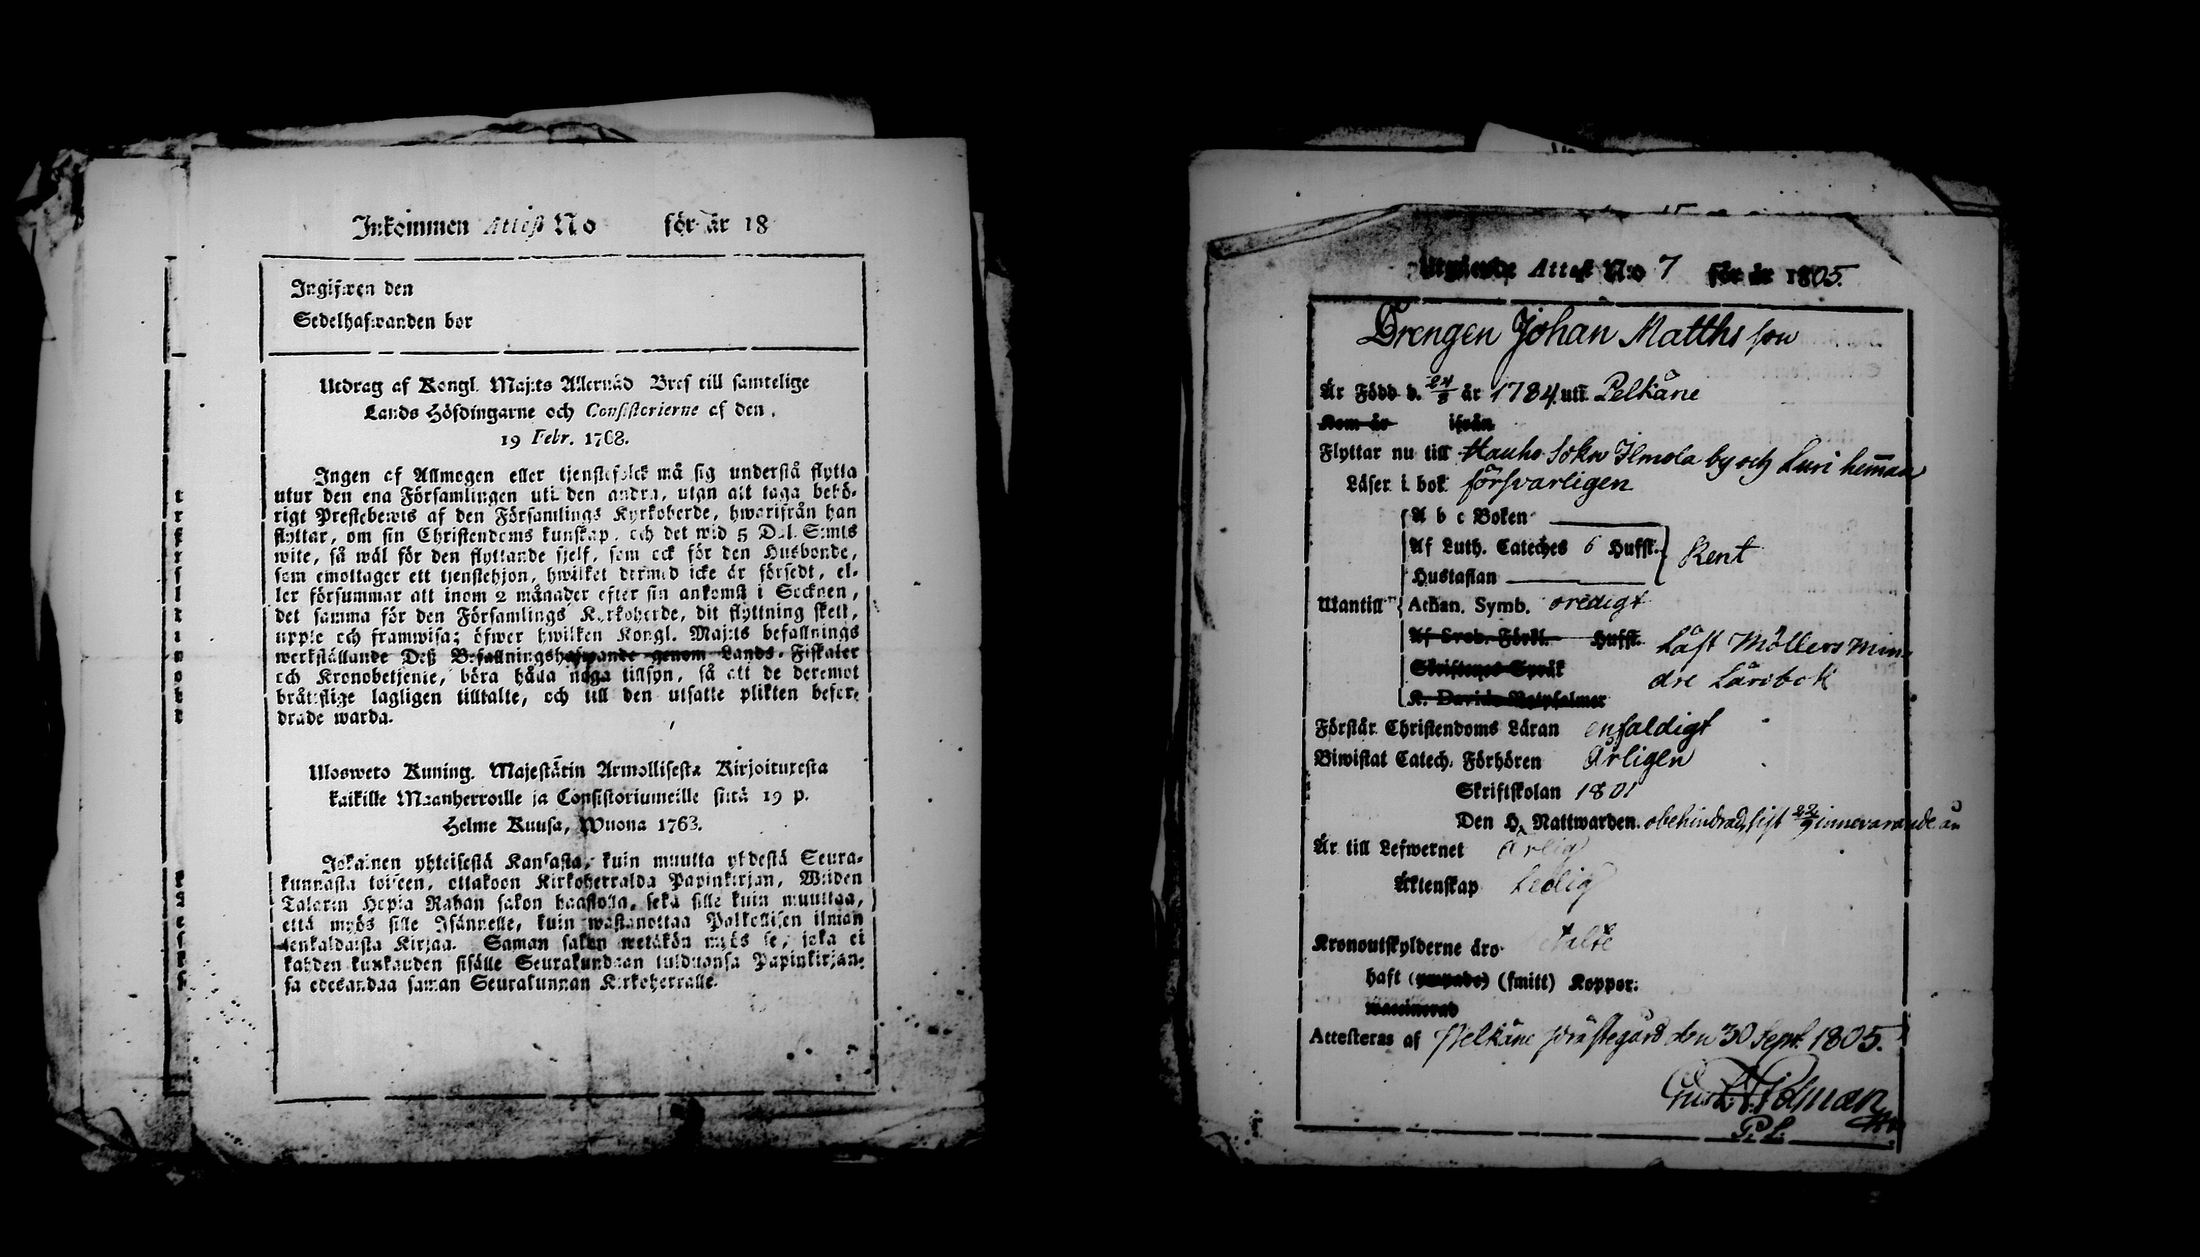 Inkommen Attest No för år 18
Ingifwen den
Sedelhafwanden bor
Utdrag af Kongl. Maj:ts Allernåd Bref till samtelige
Lands Höfdingarne och Consistorierne af den
19 Febr. 1768.
Ingen af Allmogen eller tjenstefolck må sig understå flytta
utur den ena Församlingen uti den andra, utan att taga behö-
rigt Prestebewis af den Församlings Kyrkoherde, hwarifrån han
flyttar, om sin Christendoms kunskap, och det wid 5 Dal. S:mts
wite, så wäl för den flyttande sjelf, som ock för den Husbonde,
som emottager ett tjenstehjon, hwilket dermed icke är försedt, el-
ler försummar att inom 2 månader efter sin ankomst i Socknen,
det samma för den Församlings Kyrkoherde, dit flyttning skett,
uppte och framwisa; öfwer hwilken Kongl. Maj:ts befallnings
werkställande Deß Befallningshafwande genom Lands-Fiskaler
och Kronobetjente, böra hålla noga tillsyn, så att de deremot
bråttslige lagligen tilltalte, och till den utsatte plikten befor-
drade warda.
Ulosweto Kuning. Majestätin Armollisesta Kirjoituxesta
kaikille Maanherroille ja Consistoriumeille siitä 19 p.
Helme Kuusa, Wuona 1763.
Jokainen yhteisestä Kansasta, kuin muutta yhdestä Seura-
kunnasta toiseen, ottakoon Kirkoherralda Papinkirjan, Wiiden
Talarin Hopia Rahan sakon haastolla, sekä sille kuin muuttaa,
että myös sille Isännelle, kuin wastanottaa Palkollisen ilman
senkaldaista Kirjaa. Saman sakon wetäkön myös se, joka ei
kahden kuukauden sisälle Seurakundaan tulduansa Papinkirjan-
sa edesandaa saman Seurakunnan Kirkoherralle.
Utgående Attest No 7 för år 1805.
Drengen Johan Matthsson
Är Född d. 24/8 år 1784 uti Pelkäne
Kom år ifrån
Flyttar nu till Hauho Sokn Ilmola by och Luri hem̄an
Läser i bok försvarligen
A b c Boken
Af Luth. Cateches 6 Hufst.
Rent
Hustaflan
Utantill Athan. Symb. oredigt
Af Sveb. Förkl. Hufst. Läst Möllers Min
Skriftenes Språk dre Lärobok
K. Davids Botpsalmer
Förstår Christendoms Läran enfaldigt
Biwistat Catech. Förhören Årligen
Skriftskolan 1801
Den H. Nattwarden. obehindrad, sist 22/9 innevarande år
Är till Lefwernet ärlig
Äktenskap Ledig
Kronoutskylderne äro betalte
haft (ympade) (smitt) Koppor:
waccinerad
Attesteras af Pelkäne Prästegård den 30 Sept. 1805.
P. L.